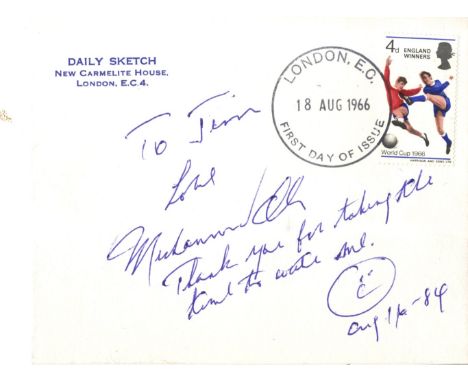 DAILY SKETCH
NEW CARMELITE HOUSE,
LONDON, E.C.4.
LONDON, E.C.
18 AUG 1966
FIRST DAY OF ISSUE
4d ENGLAND
WINNERS
World Cup 1966
HARRISON AND SONS LTD
To Jim
Love
Muhammad Ali
Thank you for taking the
time to write me.
Aug -84